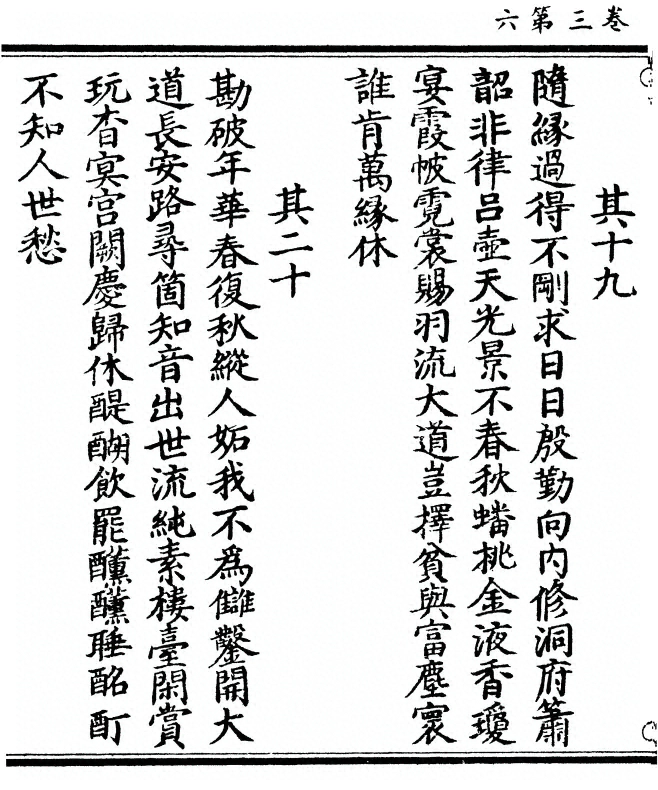 卷三第六
其十九
隨緣過得不剛求日日殷勤向內修洞府簫
韶非律呂壺天光景不春秋蟠桃金液香瓊
宴霞帔霓裳賜羽流大道豈擇貧與富塵寰
誰肯萬緣休
其二十
勘破年華春復秋縱人妬我不爲讎鑿開大
道長安路尋箇知音出世流純素樓臺閑賞
玩杳冥宮闕慶歸休醍醐飲罷醺醺睡酩酊
不知人世愁